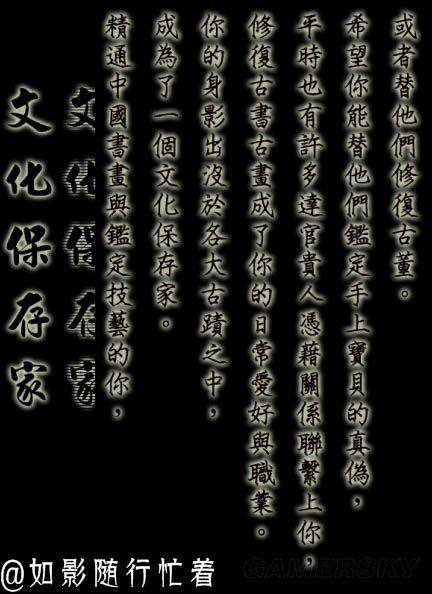 文化保存家
文化保存家
精通中國書畫與鑑定技藝的你，
成為了一個文化保存家。
你的身影出沒於各大古蹟之中，
修復古書古畫成了你的日常愛好與職業。
平時也有許多達官貴人憑藉關係聯繫上你，
希望你能替他們鑑定手上寶貝的真偽，
或者替他們修復古董。
@如影随行忙着
GAMERSKY